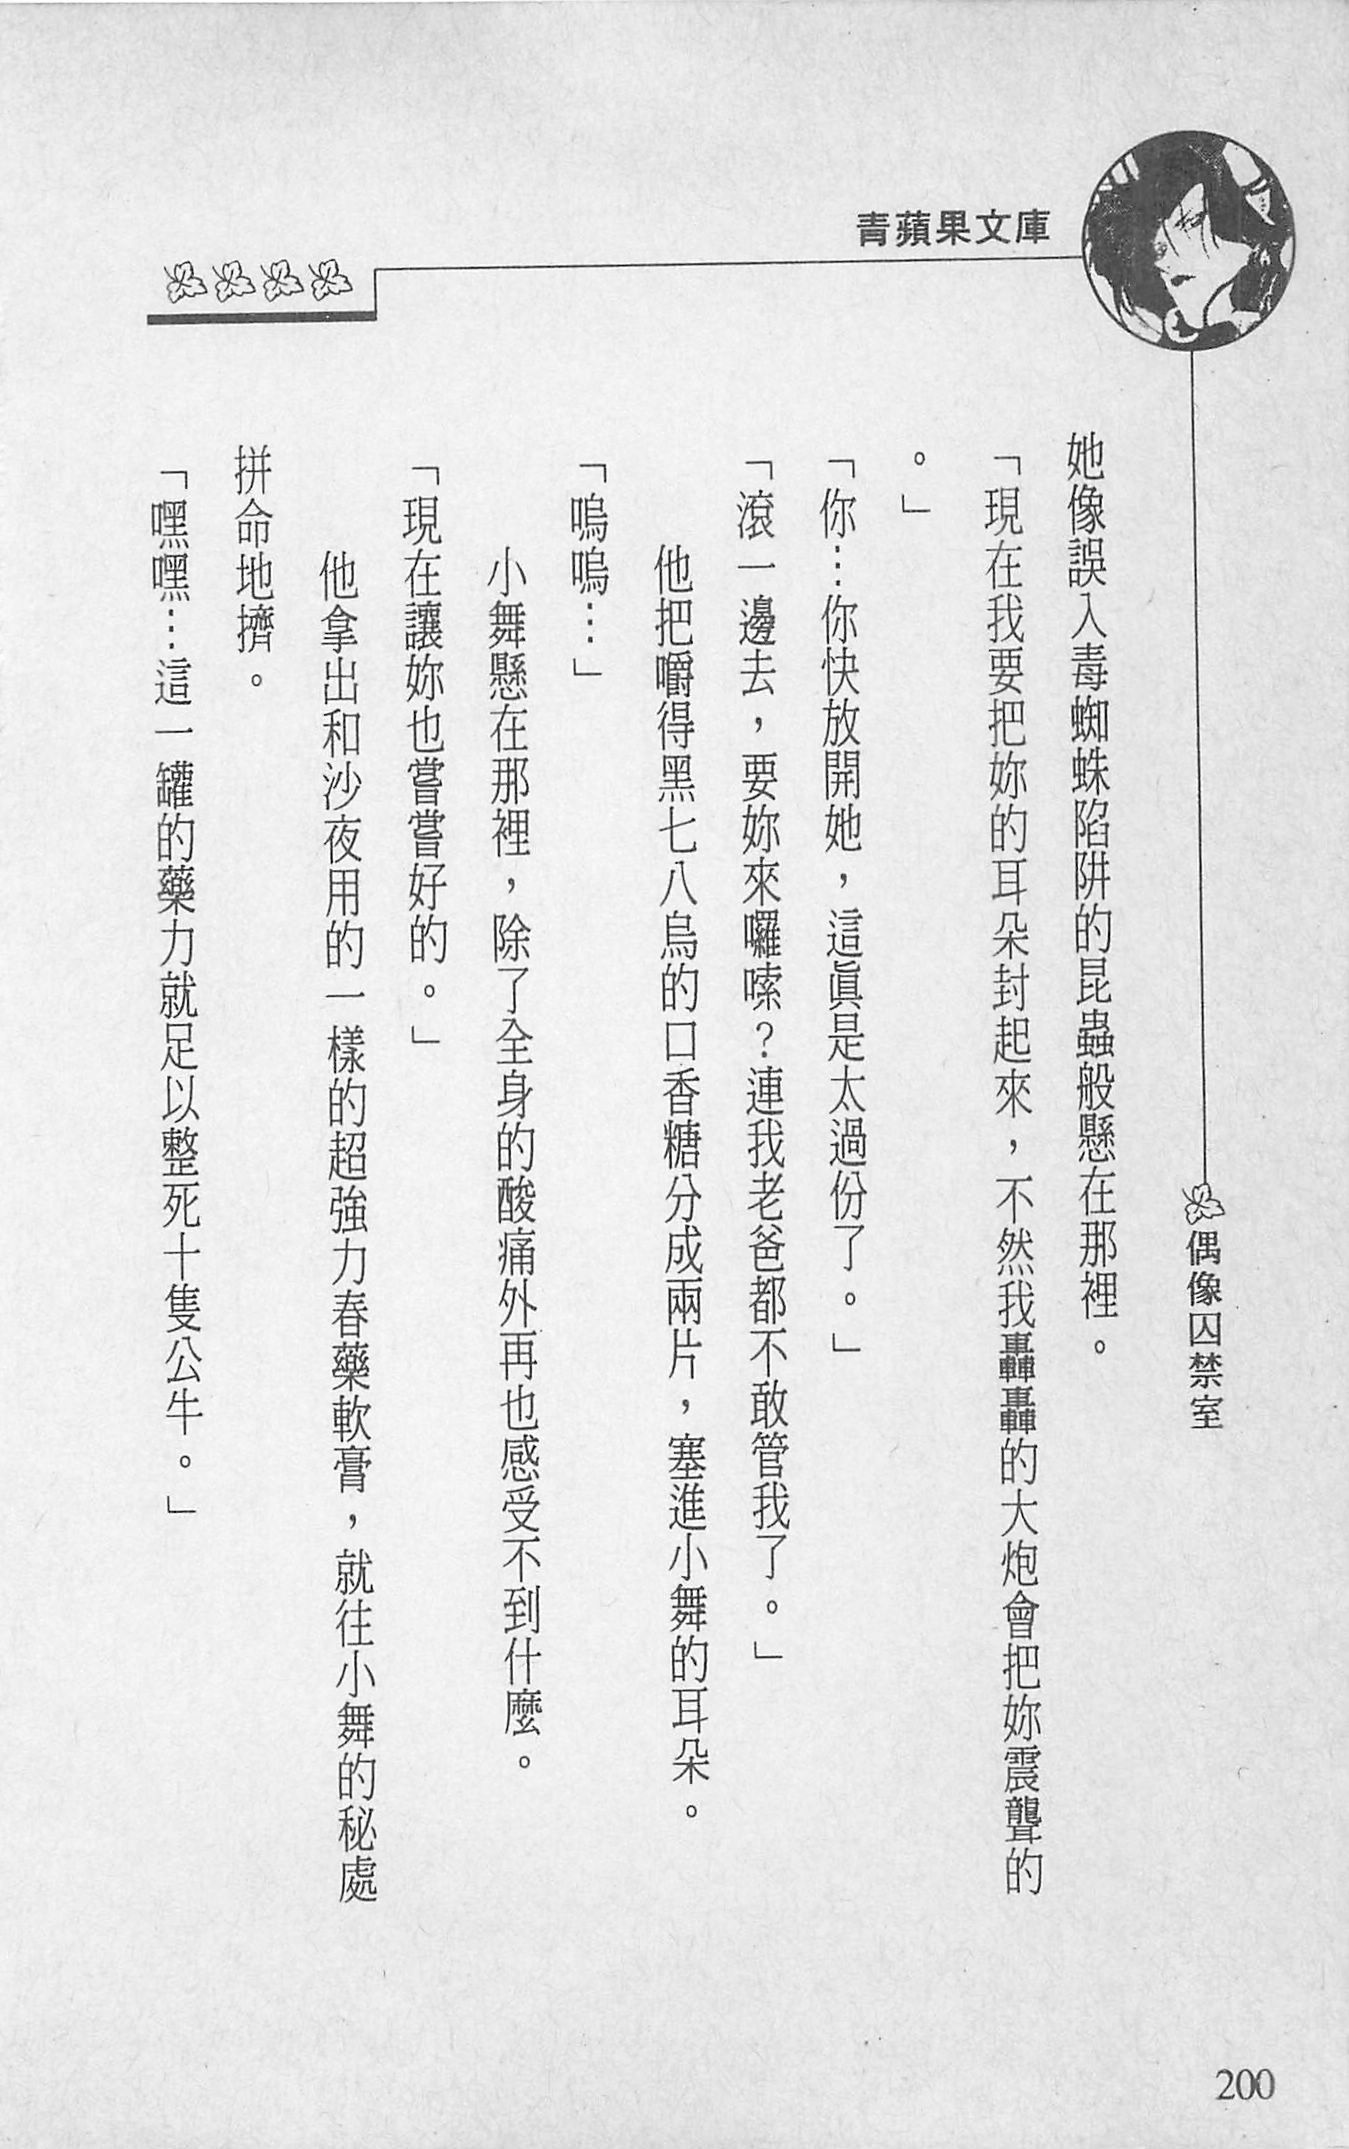 青蘋果文庫
偶像囚禁室
她像誤入毒蜘蛛陷阱的昆蟲般懸在那裡。
「現在我要把妳的耳朵封起來，不然我轟轟的大炮會把妳震聾的
。」
「你…你快放開她，這眞是太過份了。」
「滾一邊去，要妳來囉嗦？連我老爸都不敢管我了。」
他把嚼得黑七八烏的口香糖分成兩片，塞進小舞的耳朵。
「嗚嗚…」
小舞懸在那裡，除了全身的酸痛外再也感受不到什麼。
「現在讓妳也嘗嘗好的。」
他拿出和沙夜用的一樣的超強力春藥軟膏，就往小舞的秘處
拼命地擠。
「嘿嘿…這一罐的藥力就足以整死十隻公牛。」
200